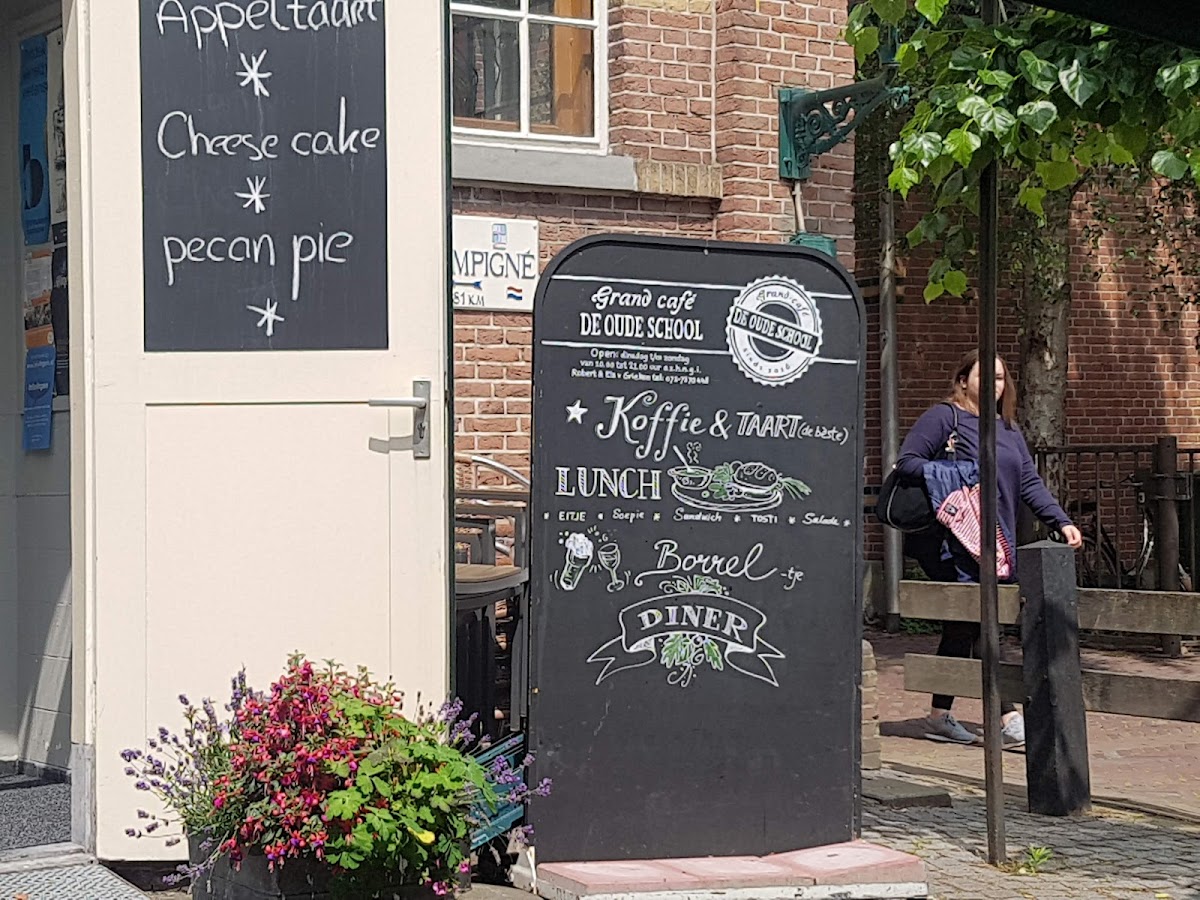 Appeltaart
Cheese cake
pecan pie
MPIGNÉ
81 KM
Grand café
DE OUDE SCHOOL
Open: dinsdag t/m zondag
van 10.00 tot 21.00 uur o.z.h.n.g.i.
Robert & Els v Grieken tel:
Grand café
DE OUDE SCHOOL
sinds 2016
Koffie & TAART (de bèste)
LUNCH
* EITJE * Soepie * Sandwich * TOSTI * Salade *
Borrel -tje
DINER